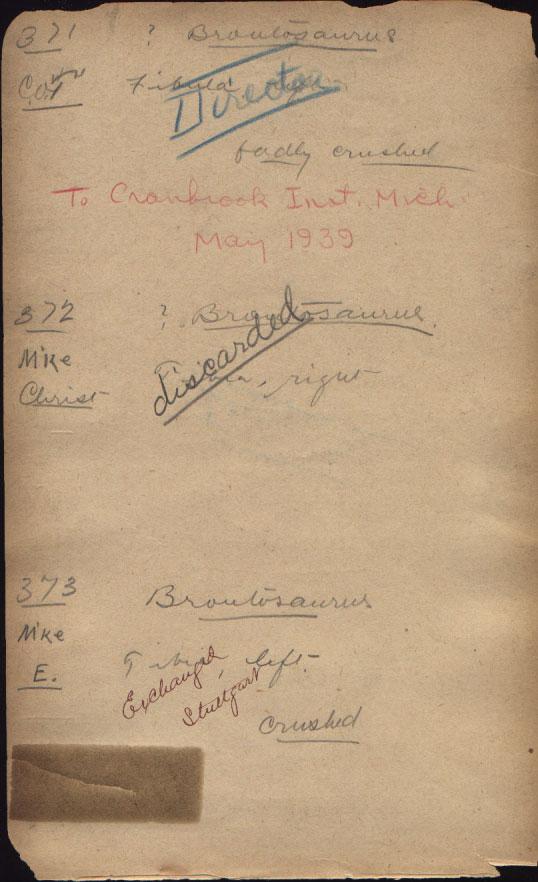 371 ? Brontosaurus
Fibula
Director
badly crushed
To Cranbrook Inst. Mich.
May 1939
372 ? Brontosaurus
M'Ke
discarded
Christ
right
373 Brontosaurus
M'Ke
E. Tibia, left
Exchanged
Stuttgart
crushed